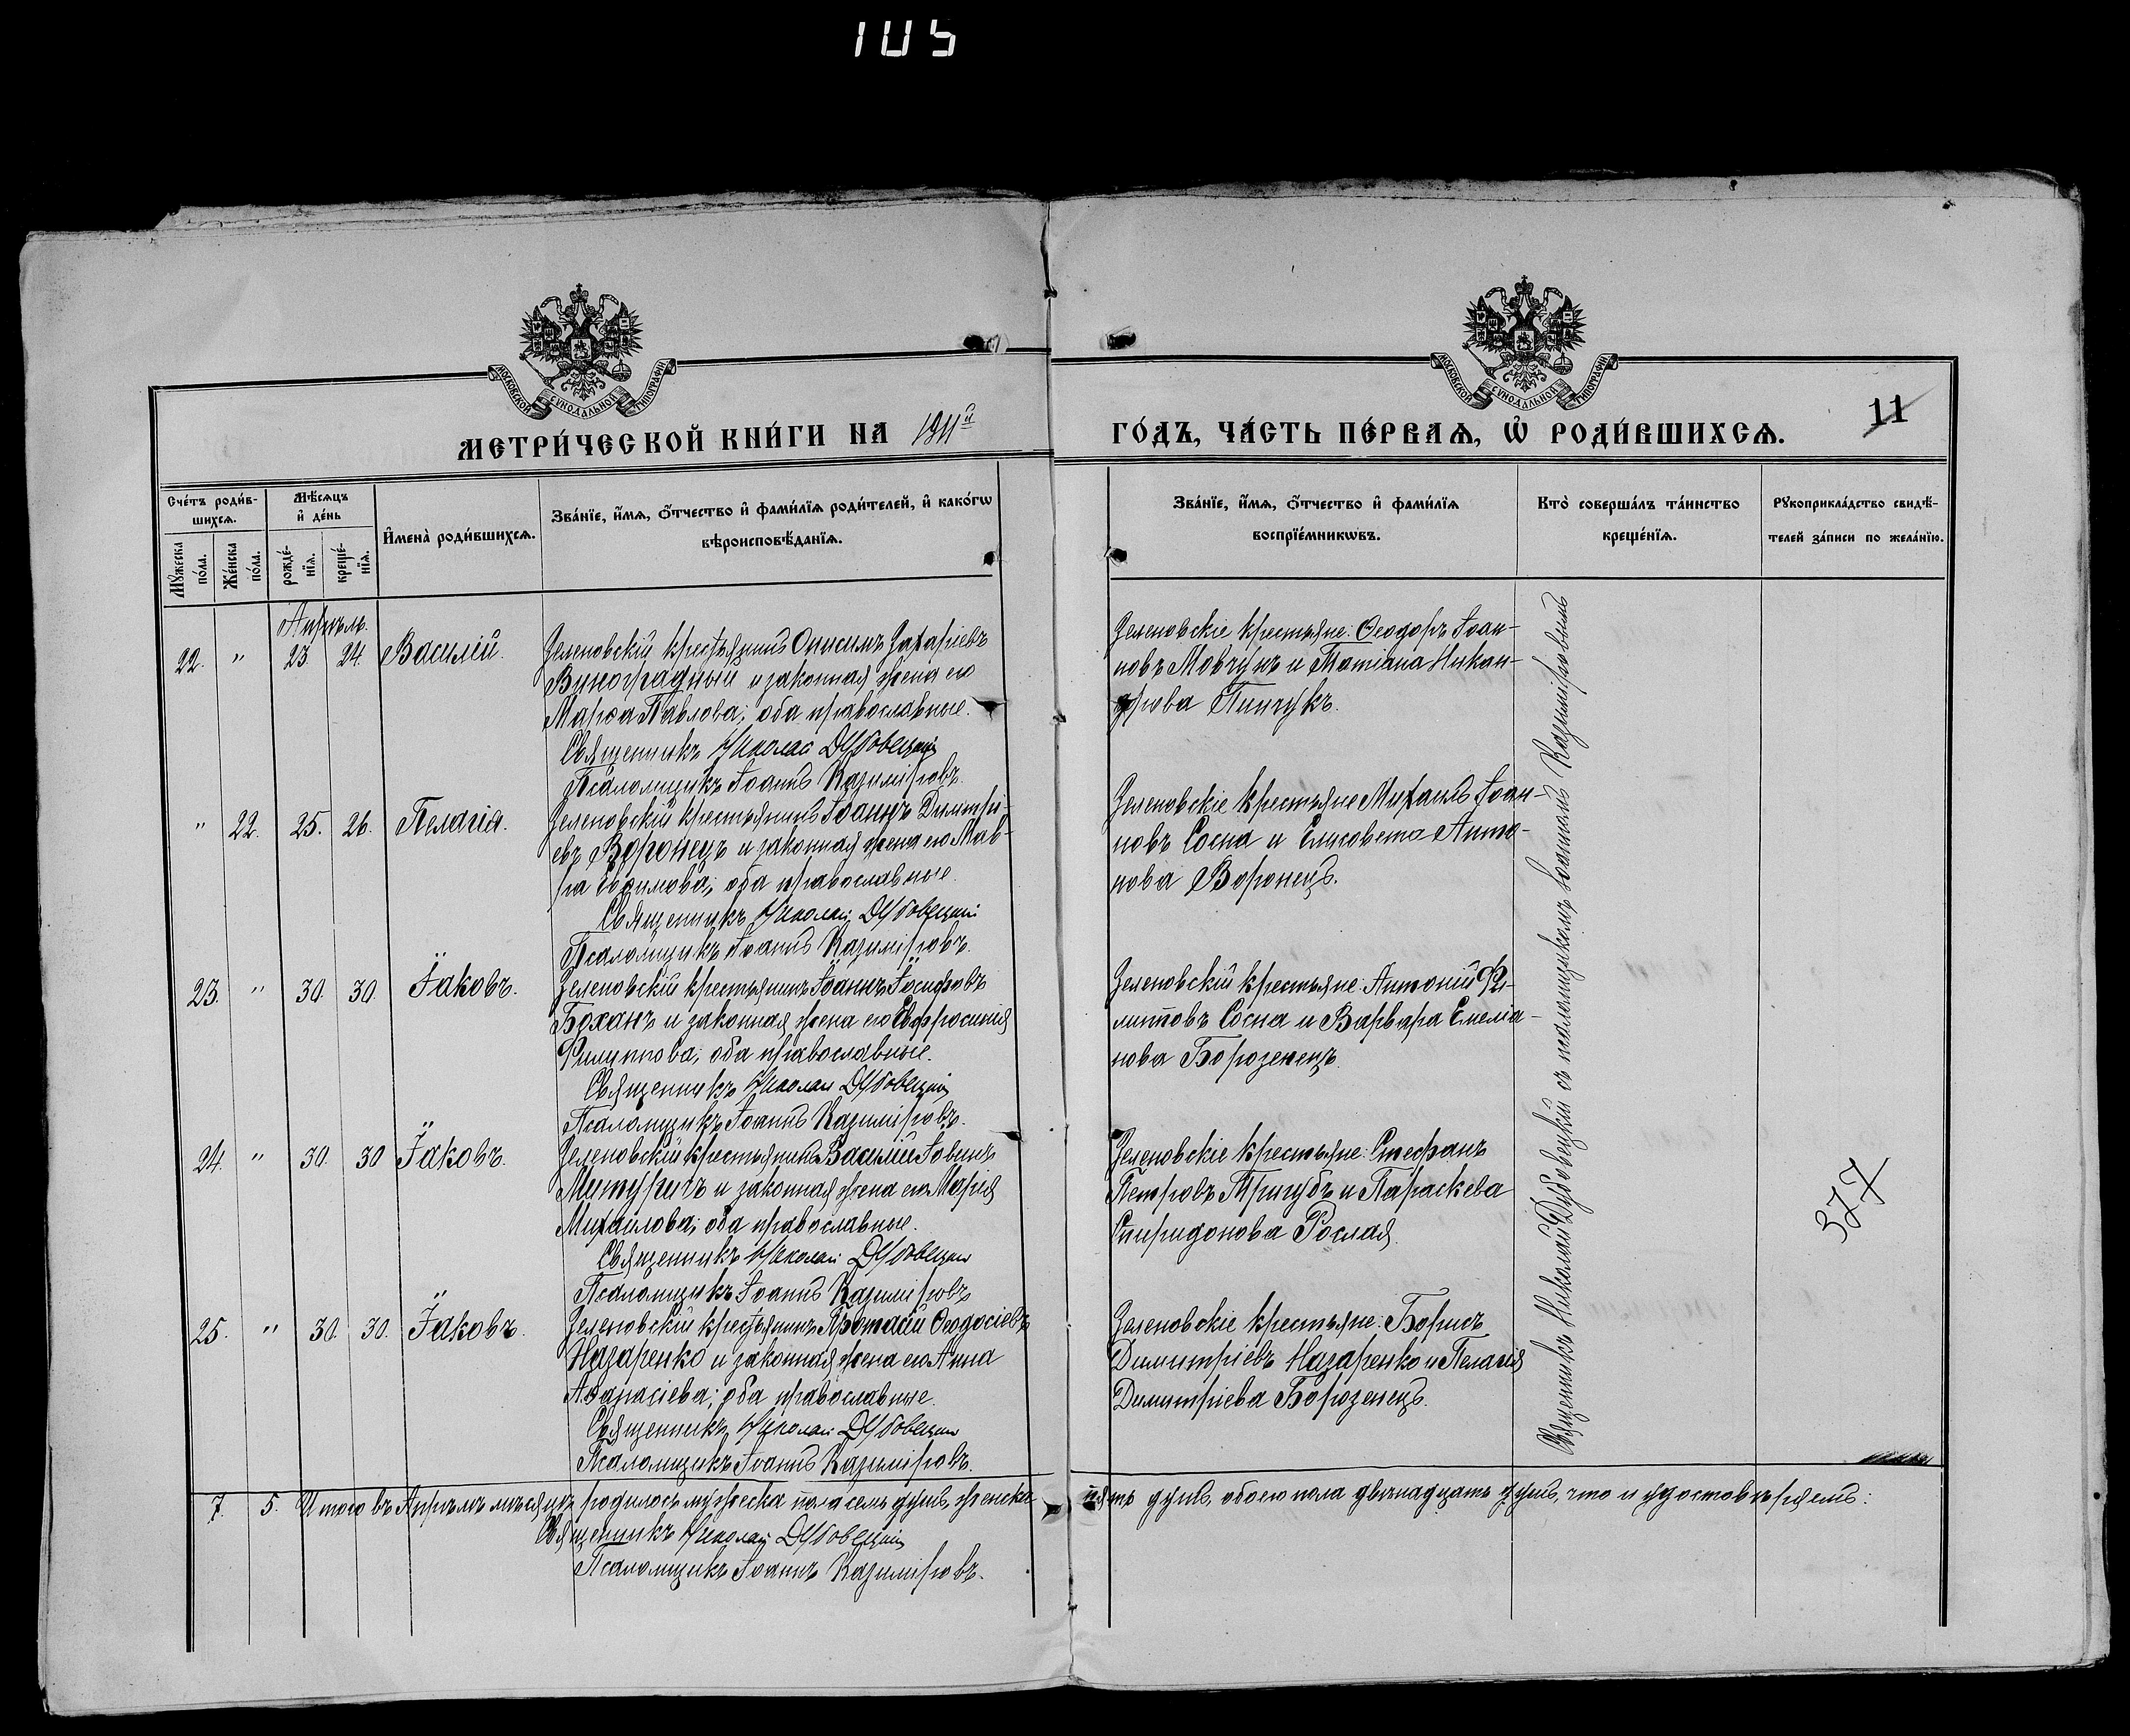 105
МОСКОВСКОЙ СѴНОДАЛЬНОЙ ТИПОГРАФІИ
МОСКОВСКОЙ СѴНОДАЛЬНОЙ ТИПОГРАФІИ
МЕТРИ́ЧЕСКОЙ КНИ́ГИ НА 1911й
ГО́ДЪ, ЧА́СТЬ ПЕ́РВАѦ, Ѡ҆ РОДИ́ВШИХСѦ.
11
Сче́тъ роди́в-
шихсѧ.
Мѣ́сѧцъ
и҆ де́нь
И҆мена̀ роди́вшихсѧ.
Зва́нїе, и҆́мѧ, ѻ҆́тчество и҆ фами́лїѧ роди́телей, и҆ како́гѡ
вѣроисповѣ́данїѧ.
Мꙋ́жеска
по́ла.
Же́нска
по́ла.
рожде́-
нїѧ.
креще́-
нїѧ.
Зва́нїе, и҆́мѧ, ѻ҆́тчество и҆ фами́лїѧ
воспрїе́мникѡвъ.
Кто̀ соверша́лъ та́инство
креще́нїѧ.
Рꙋкоприкла́дство свидѣ́-
телей за́писи по жела́нїю.
Апрѣль.
22. " 23. 24. Василій.
Зеленовскій крестьянинъ Онисимъ Захаріевъ
Виноградный и законная жена его
Марѳа Павлова; оба православные.
Священникъ Николай Дубовецкій
Псаломщикъ Іоаннъ Казиміровъ.
Зеленовскіе крестьяне: Ѳеодоръ Іоан-
новъ Мовчунъ и Татіана Никан-
дрова Пинчукъ.
" 22. 25. 26. Пелагія.
Зеленовскій крестьянинъ Іоаннъ Димитрі-
евъ Воронецъ и законная жена его Мав-
ра Евѳимова; оба православные.
Священникъ Николай Дубовецкій
Псаломщикъ Іоаннъ Казиміровъ.
Зеленовскіе крестьяне Михаилъ Іоан-
новъ Сосна и Елисовета Анто-
нова Воронецъ.
23. " 30. 30. Іаковъ.
Зеленовскій крестьянинъ Іоаннъ Іосифовъ
Боханъ и законная жена его Евфросинія
Филиппова; оба православные.
Священникъ Николай Дубовецкій
Псаломщикъ Іоаннъ Казиміровъ.
Зеленовскій крестьяне: Антоній Фи-
липповъ Сосна и Варвара Емеліа-
нова Борозенецъ.
24. " 30. 30 Іаковъ.
Зеленовскій крестьянинъ Василій Іовинъ
Митуричъ и законная жена его Марія
Михайлова; оба православные.
Священникъ Николай Дубовецкій
Псаломщикъ Іоаннъ Казиміровъ
Зеленовскіе крестьяне: Стефанъ
Петровъ Тригубъ и Параскева
Спиридонова Рослая.
25. " 30. 30. Іаковъ.
Зеленовскій крестьянинъ Протасій Ѳеодосіевъ
Назаренко и законная жена его Анна
Аѳанасіева; оба православные.
Священникъ Николай Дубовецкій
Псаломщикъ Іоаннъ Казиміровъ.
Зеленовскіе крестьяне: Борисъ
Димитріевъ Назаренко и Пелагія
Димитріева Борозенецъ.
Священникъ Николай Дубовецкій съ псаломщикомъ Іоанномъ Казиміровымъ
377
7. 5. Итого въ Апрѣлѣ мѣсяцѣ родилось мужеска пола семь душъ, женска пять душъ, обоего пола двѣнадцать душъ, что и удостовѣряемъ:
Священникъ Николай Дубовецкій
Псаломщикъ Іоаннъ Казиміровъ.